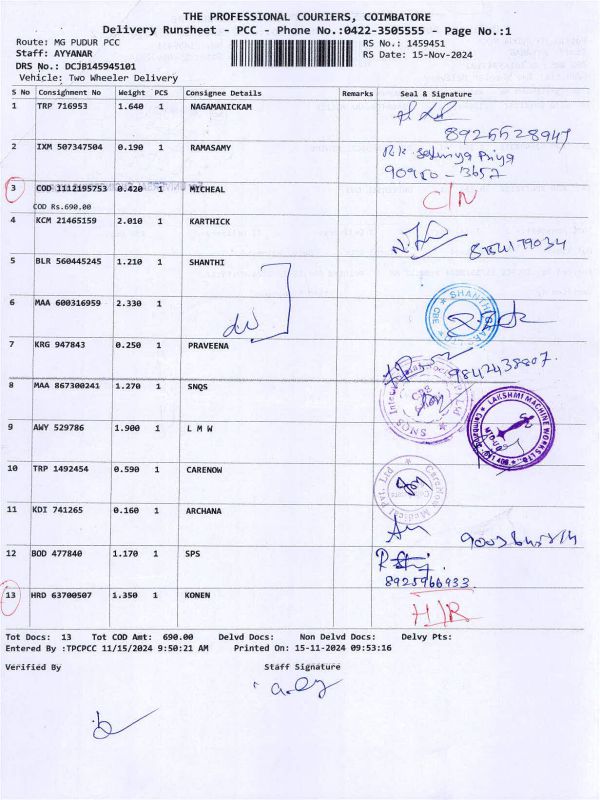 THE PROFESSIONAL COURIERS, COIMBATORE
Delivery Runsheet - PCC - Phone No.:0422-3505555 - Page No.:1
Route: MG PUDUR PCC RS No.: 1459451
Staff: AYYANAR RS Date: 15-Nov-2024
DRS No.: DCJB145945101
Vehicle: Two Wheeler Delivery
S No Consignment No Weight PCS Consignee Details Remarks Seal & Signature
1 TRP 716953 1.640 1 NAGAMANICKAM
8925528947
2 IXM 507347504 0.190 1 RAMASAMY
90980-3657
3 COD 1112195753 0.420 1 MICHEAL C/N
COD Rs.690.00
4 KCM 21465159 2.010 1 KARTHICK
5 BLR 560445245 1.210 1 SHANTHI
6 MAA 600316959 2.330 1
SHANTHI
CBE
7 KRG 947843 0.250 1 PRAVEENA
9842438807.
8 MAA 867300241 1.270 1 SNQS
CBE
LAKSHMI MACHINE WORKS LTD
9 AWY 529786 1.900 1 L M W
10 TRP 1492454 0.590 1 CARENOW
CareNow Medical Pvt. Ltd
11 KDI 741265 0.160 1 ARCHANA
12 BOD 477840 1.170 1 SPS
8925966933.
13 HRD 63700507 1.350 1 KONEN H/R
Tot Docs: 13 Tot COD Amt: 690.00 Delvd Docs: Non Delvd Docs: Delvy Pts:
Entered By :TPCPCC 11/15/2024 9:50:21 AM Printed On: 15-11-2024 09:53:16
Verified By Staff Signature